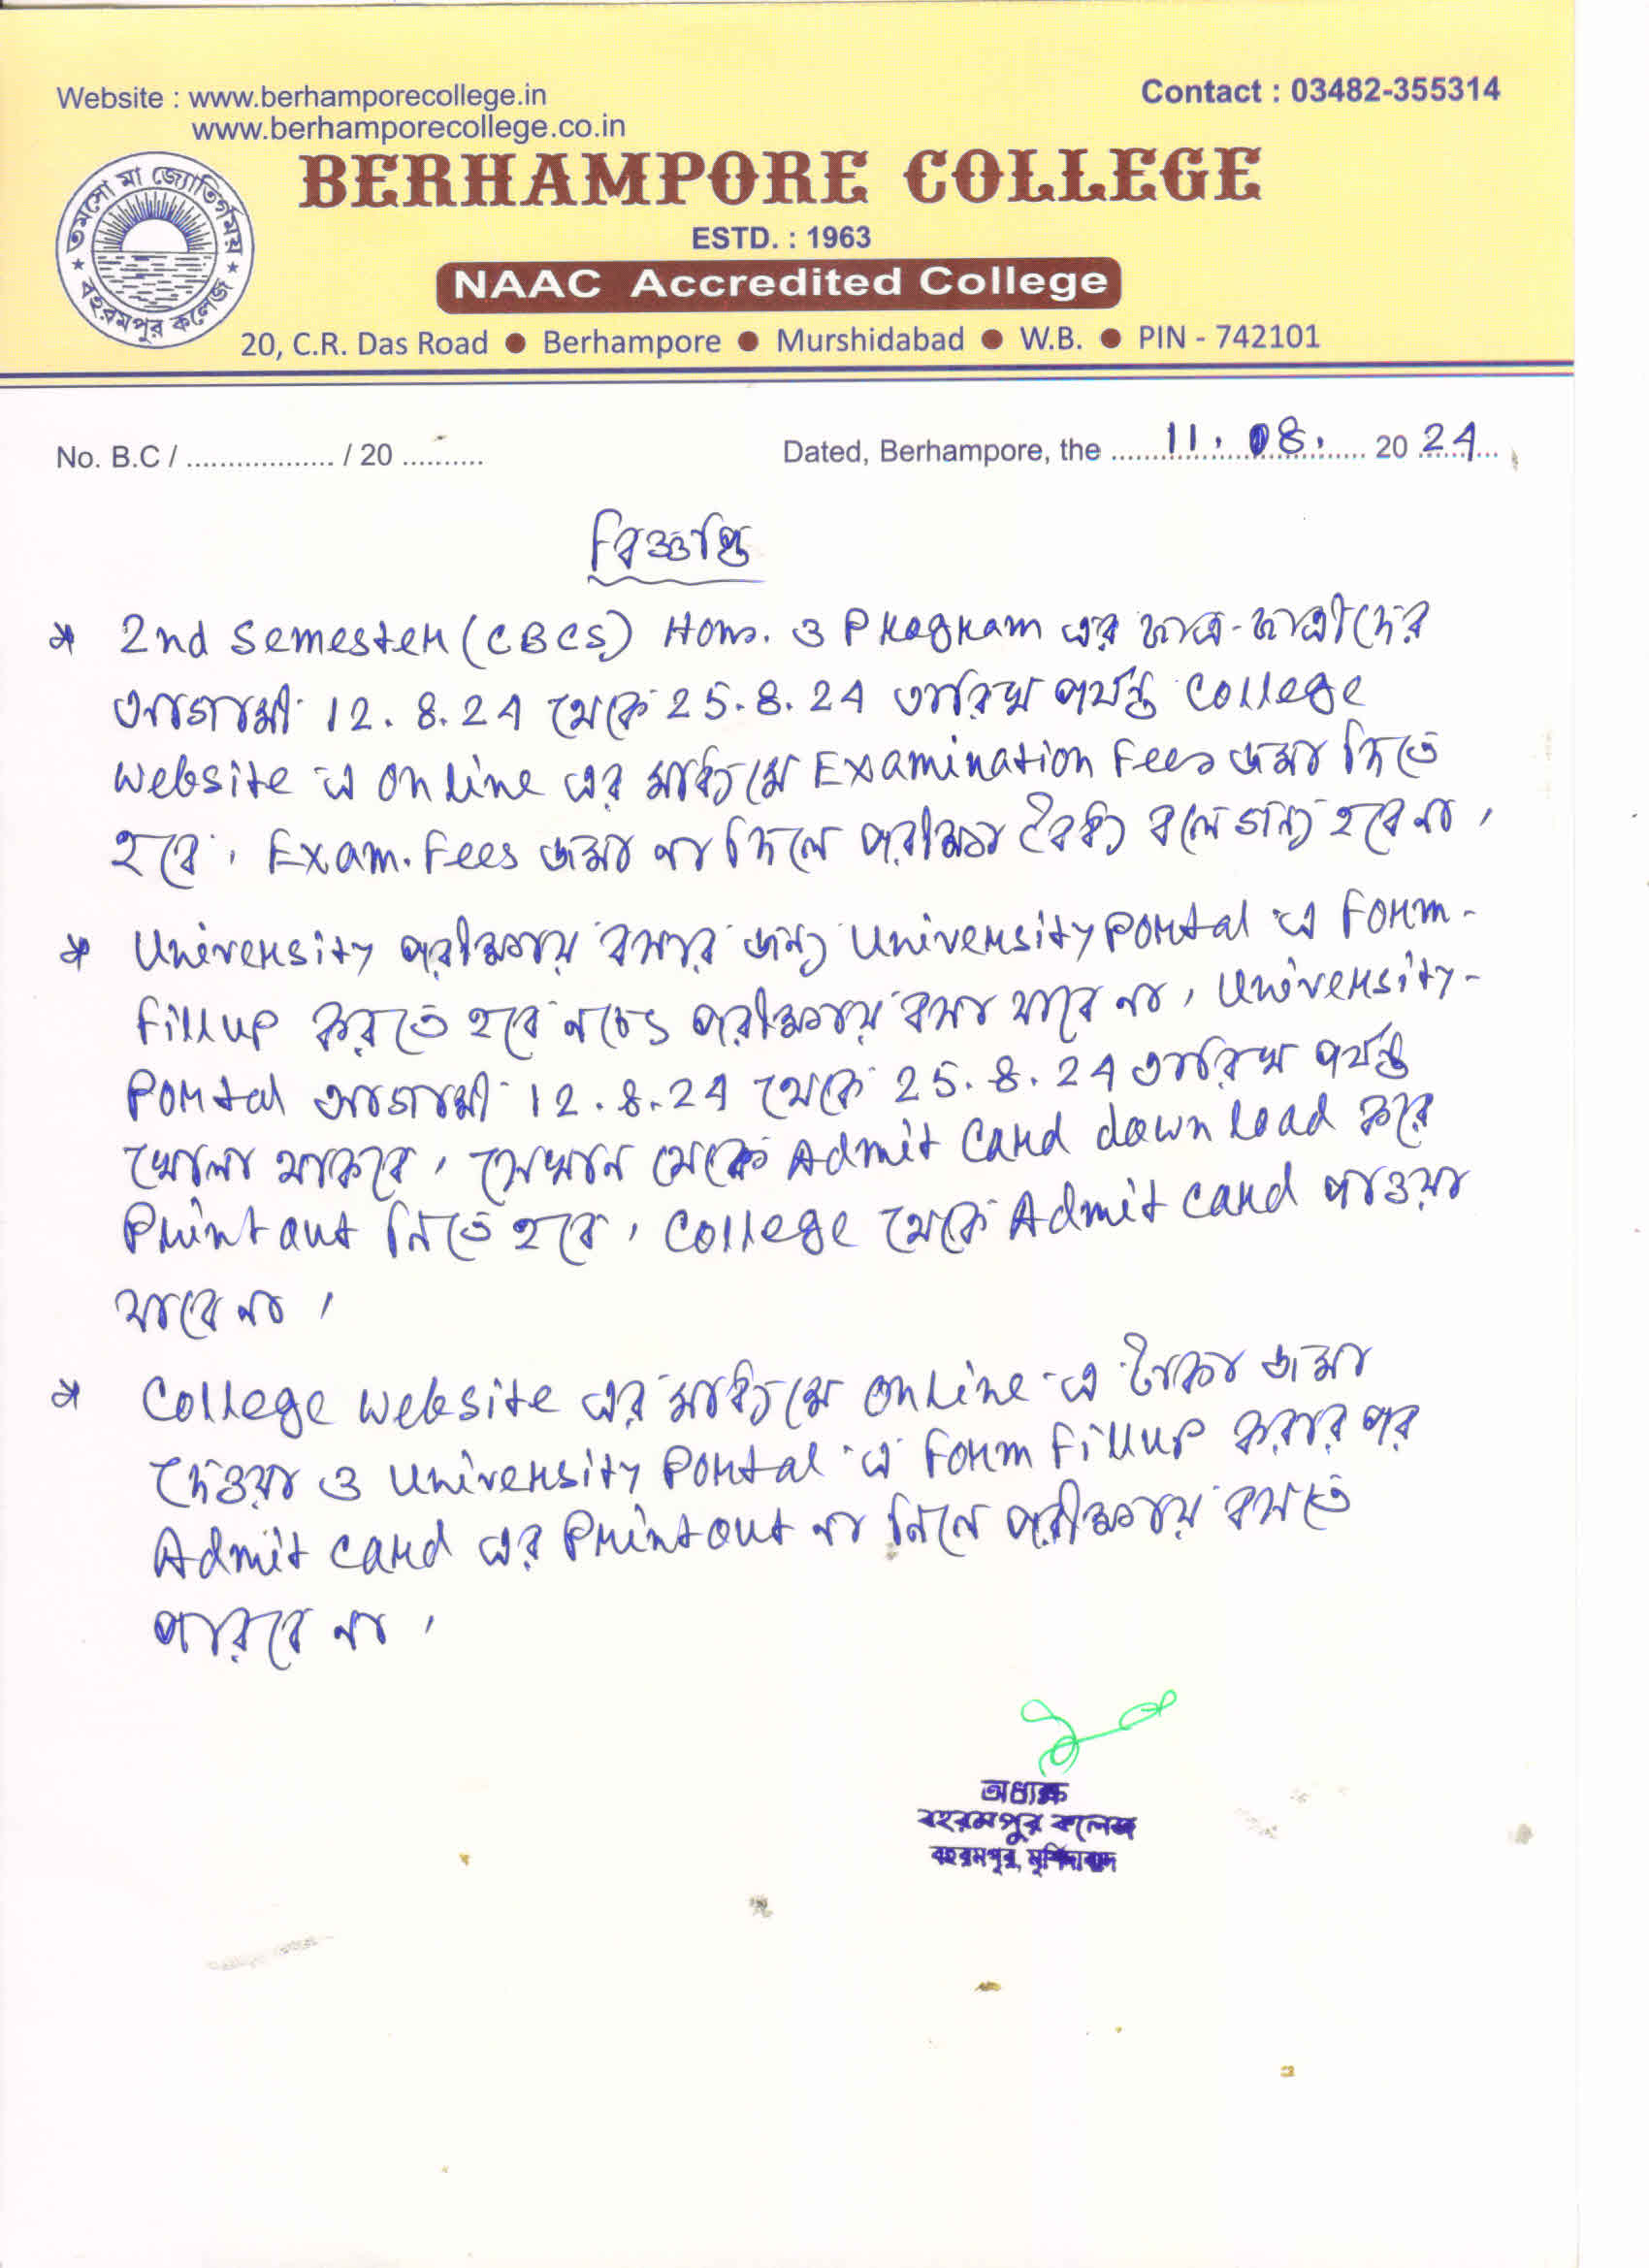 Website : www.berhamporecollege.in
www.berhamporecollege.co.in
Contact : 03482-355314
তমসো মা জ্যোতির্গময়
বহরমপুর কলেজ
BERHAMPORE COLLEGE
ESTD. : 1963
NAAC Accredited College
20, C.R. Das Road ● Berhampore ● Murshidabad ● W.B. ● PIN - 742101
No. B.C / .................. / 20 ..........
Dated, Berhampore, the 11.08. 2024
বিজ্ঞপ্তি
* 2nd Semester (CBCS) Hons. ও Program এর ছাত্র-ছাত্রীদের
আগামী 12.8.24 থেকে 25.8.24 তারিখ পর্যন্ত College
Website এ online এর মাধ্যমে Examination Fees জমা দিতে
হবে। Exam. Fees জমা না দিলে পরীক্ষা বৈধ্য বলে গন্য হবে না।
* University পরীক্ষায় বসার জন্য University Portal এ Form-
Fillup করতে হবে নচেৎ পরীক্ষায় বসা যাবে না। University-
Portal আগামী 12.8.24 থেকে 25.8.24 তারিখ পর্যন্ত
খোলা থাকবে। সেখান থেকে Admit Card download করে
Print out নিতে হবে। College থেকে Admit card পাওয়া
যাবে না।
* College website এর মাধ্যমে online এ টাকা জমা
দেওয়া ও University Portal এ Form Fillup করার পর
Admit card এর Print out না নিলে পরীক্ষায় বসতে
পারবে না।
অধ্যক্ষ
বহরমপুর কলেজ
বহরমপুর, মুর্শিদাবাদ